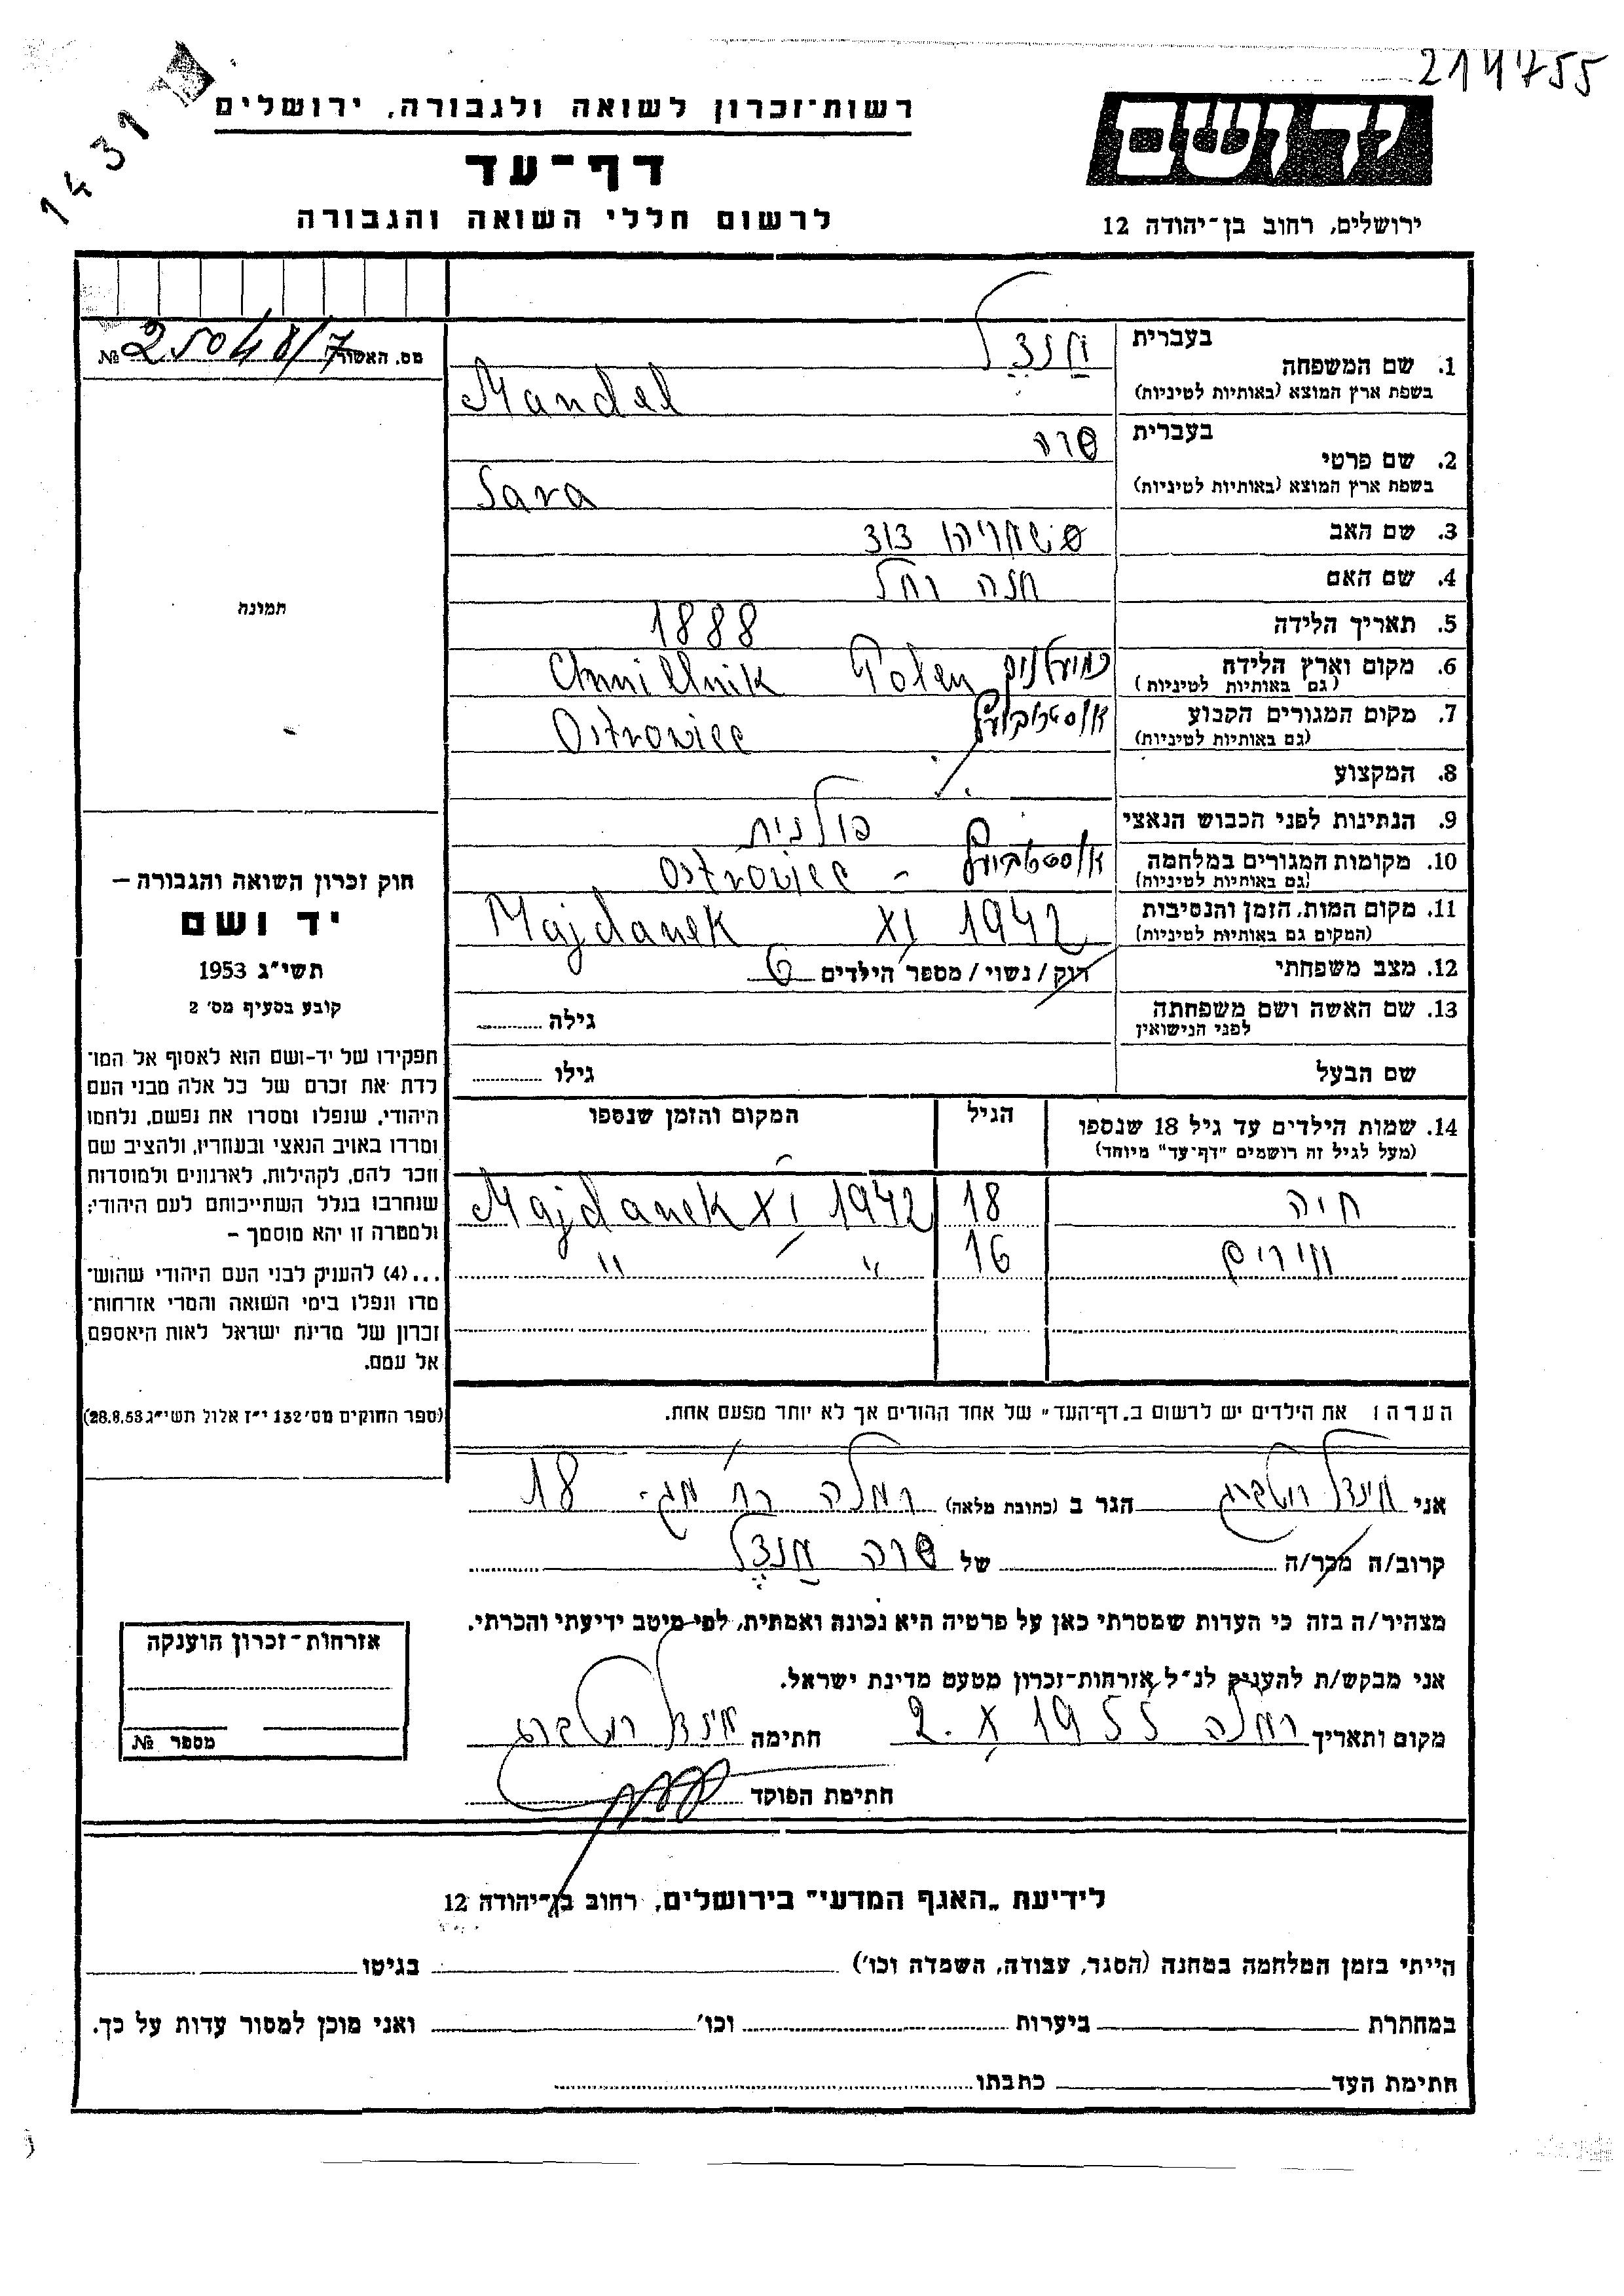 214755
1431
רשות־זכרון לשואה ולגבורה, ירושלים
יד ושם
דף־עד
לרשום חללי השואה והגבורה
ירושלים, רחוב בן־יהודה 12
מס. האשור 25048/7 №
1. שם המשפחה
בעברית מַנדֶל
בשפת ארץ המוצא (באותיות לטיניות) Mandel
2. שם פרטי
בעברית שרה
בשפת ארץ המוצא (באותיות לטיניות) Sara
3. שם האב שמריהו דוד
4. שם האם חנה רחל
5. תאריך הלידה 1888
6. מקום וארץ הלידה
(גם באותיות לטיניות) Chmielnik Polen
7. מקום המגורים הקבוע
(גם באותיות לטיניות) Ostrowiec
8. המקצוע
9. הנתינות לפני הכבוש הנאצי פולנית
10. מקומות המגורים במלחמה
(גם באותיות לטיניות) Ostrowiec
11. מקום המות, הזמן והנסיבות
(המקום גם באותיות לטיניות) Majdanek XI 1942
12. מצב משפחתי רוק / נשוי / מספר הילדים 6
13. שם האשה ושם משפחתה
לפני הנישואין גילה
שם הבעל גילו
14. שמות הילדים עד גיל 18 שנספו
(מעל לגיל זה רושמים "דף־עד" מיוחד)
הגיל
המקום והזמן שנספו
חיה 18 Majdanek XI 1942
מירים 16 " "
הערה: את הילדים יש לרשום ב„דף־העד" של אחד ההורים אך לא יותר מפעם אחת.
אני הגר ב (כתובת מלאה) רמלה 18
קרוב/ה מכר/ה של שרה מַנדֶל
מצהיר/ה בזה כי העדות שמסרתי כאן על פרטיה היא נכונה ואמתית, לפי מיטב ידיעתי והכרתי.
אני מבקש/ת להעניק לנ"ל אזרחות־זכרון מטעם מדינת ישראל.
מקום ותאריך רמלה 2. X 1955 חתימה
חתימת הפוקד
תמונה
חוק זכרון השואה והגבורה –
יד ושם
תשי"ג 1953
קובע בסעיף מס' 2
תפקידו של יד-ושם הוא לאסוף אל המו־
לדת את זכרם של כל אלה מבני העם
היהודי, שנפלו ומסרו את נפשם, נלחמו
ומרדו באויב הנאצי ובעוזריו, ולהציב שם
וזכר להם, לקהילות, לארגונים ולמוסדות
שנחרבו בגלל השתייכותם לעם היהודי;
ולמטרה זו יהא מוסמך –
...(4) להעניק לבני העם היהודי שהוש־
מדו ונפלו בימי השואה והמרי אזרחות־
זכרון של מדינת ישראל לאות היאספם
אל עמם.
(ספר החוקים מס' 132 י"ז אלול תשי"ג 28.8.53)
אזרחות־זכרון הוענקה
מספר №
לידיעת „האגף המדעי" בירושלים, רחוב בן־יהודה 12
הייתי בזמן המלחמה במחנה (הסגר, עבודה, השמדה וכו') בגיטו
במחתרת ביערות וכו' ואני מוכן למסור עדות על כך.
חתימת העד כתבתו